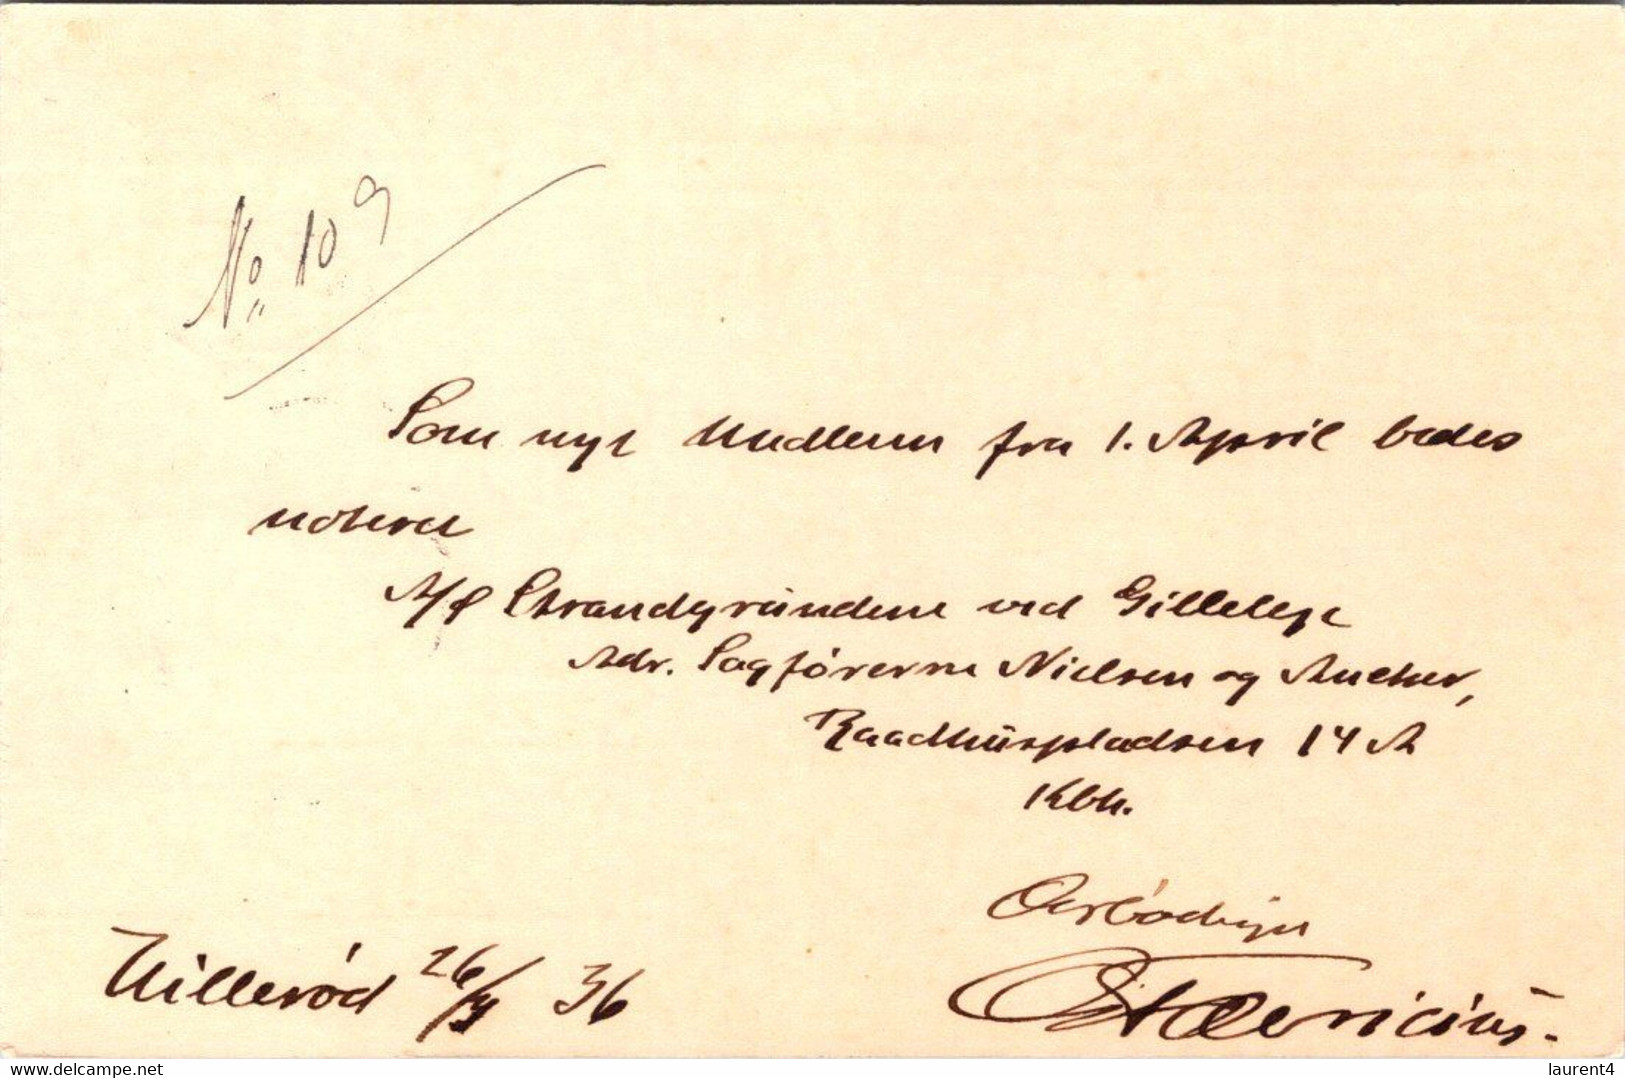 No 109
Som nyt Medlem fra 1. April bedes
noteret
A/S Strandgrunden ved Gilleleje
Adr. Sagførerne Nielsen og Ancher,
Raadhuspladsen 14 A
Kbh.
Ærbødigst
Hillerød 26/3 36
delcampe.net
laurent4